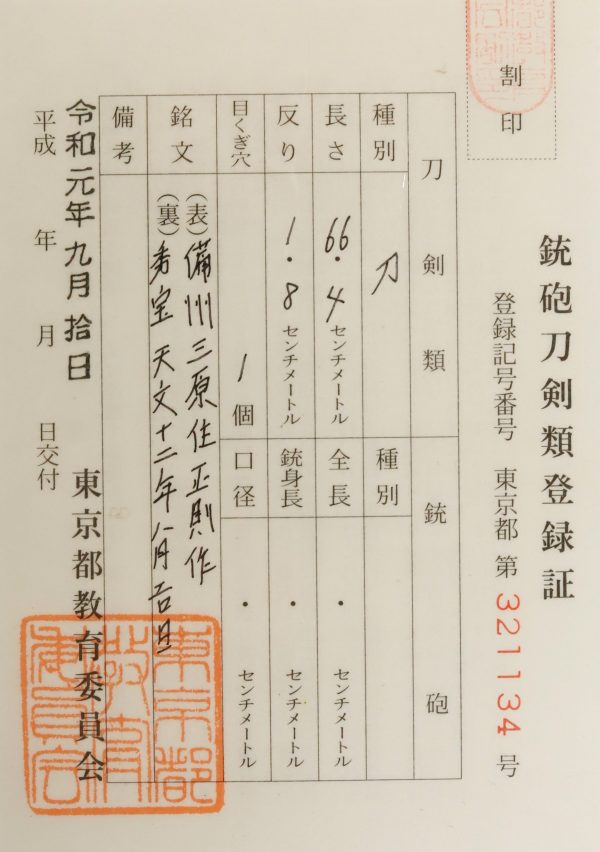 割印
銃砲刀剣類登録証
登録記号番号 東京都 第 321134 号
刀剣類 銃砲
種別 刀 種別
長さ 66.4センチメートル 全長 ・ センチメートル
反り 1.8センチメートル 銃身長 ・ センチメートル
目くぎ穴 1個 口径 ・ センチメートル
銘文 (表)備州三原住正則作
(裏) 宝 天文十二年八月吉日
備考
令和元年九月拾日
平成 年 月 日交付
東京都教育委員会
東京都教育委員会